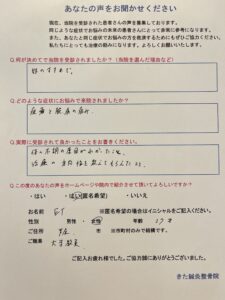 あなたの声をお聞かせください
現在、当院を受診された患者さんの声を募集しております。
同じような症状でお悩みの未来の患者さんにとって非常に参考になります。
また、あなたと同じ症状でお悩みの方を救済するためにもぜひご協力ください。
私たちにとっても治療の励みになります。よろしくお願いいたします。
Q.何が決めてで当院を受診されましたか?(当院を選んだ理由など)
のすすめで。
Q.どのような症状にお悩みで来院されましたか?
腰痛と
の痛み。
Q.実際に受診されて良かったことをお書きください。
体の不調の原因がわかったこと。
治療の
を教えてもらえたこと。
Q.この度のあなたの声をホームページや院内で紹介させて頂いてよろしいですか?
・はい ・はい(匿名希望) ・いいえ
お名前 ※匿名希望の場合はイニシャルをご記入ください。
性別 男性 ・ 女性 年齢
ご住所 市 ※市町村のみで結構です。
ご職業 大学教員
ご記入お疲れ様でした。ご協力誠にありがとうございました。
きた鍼灸整骨院